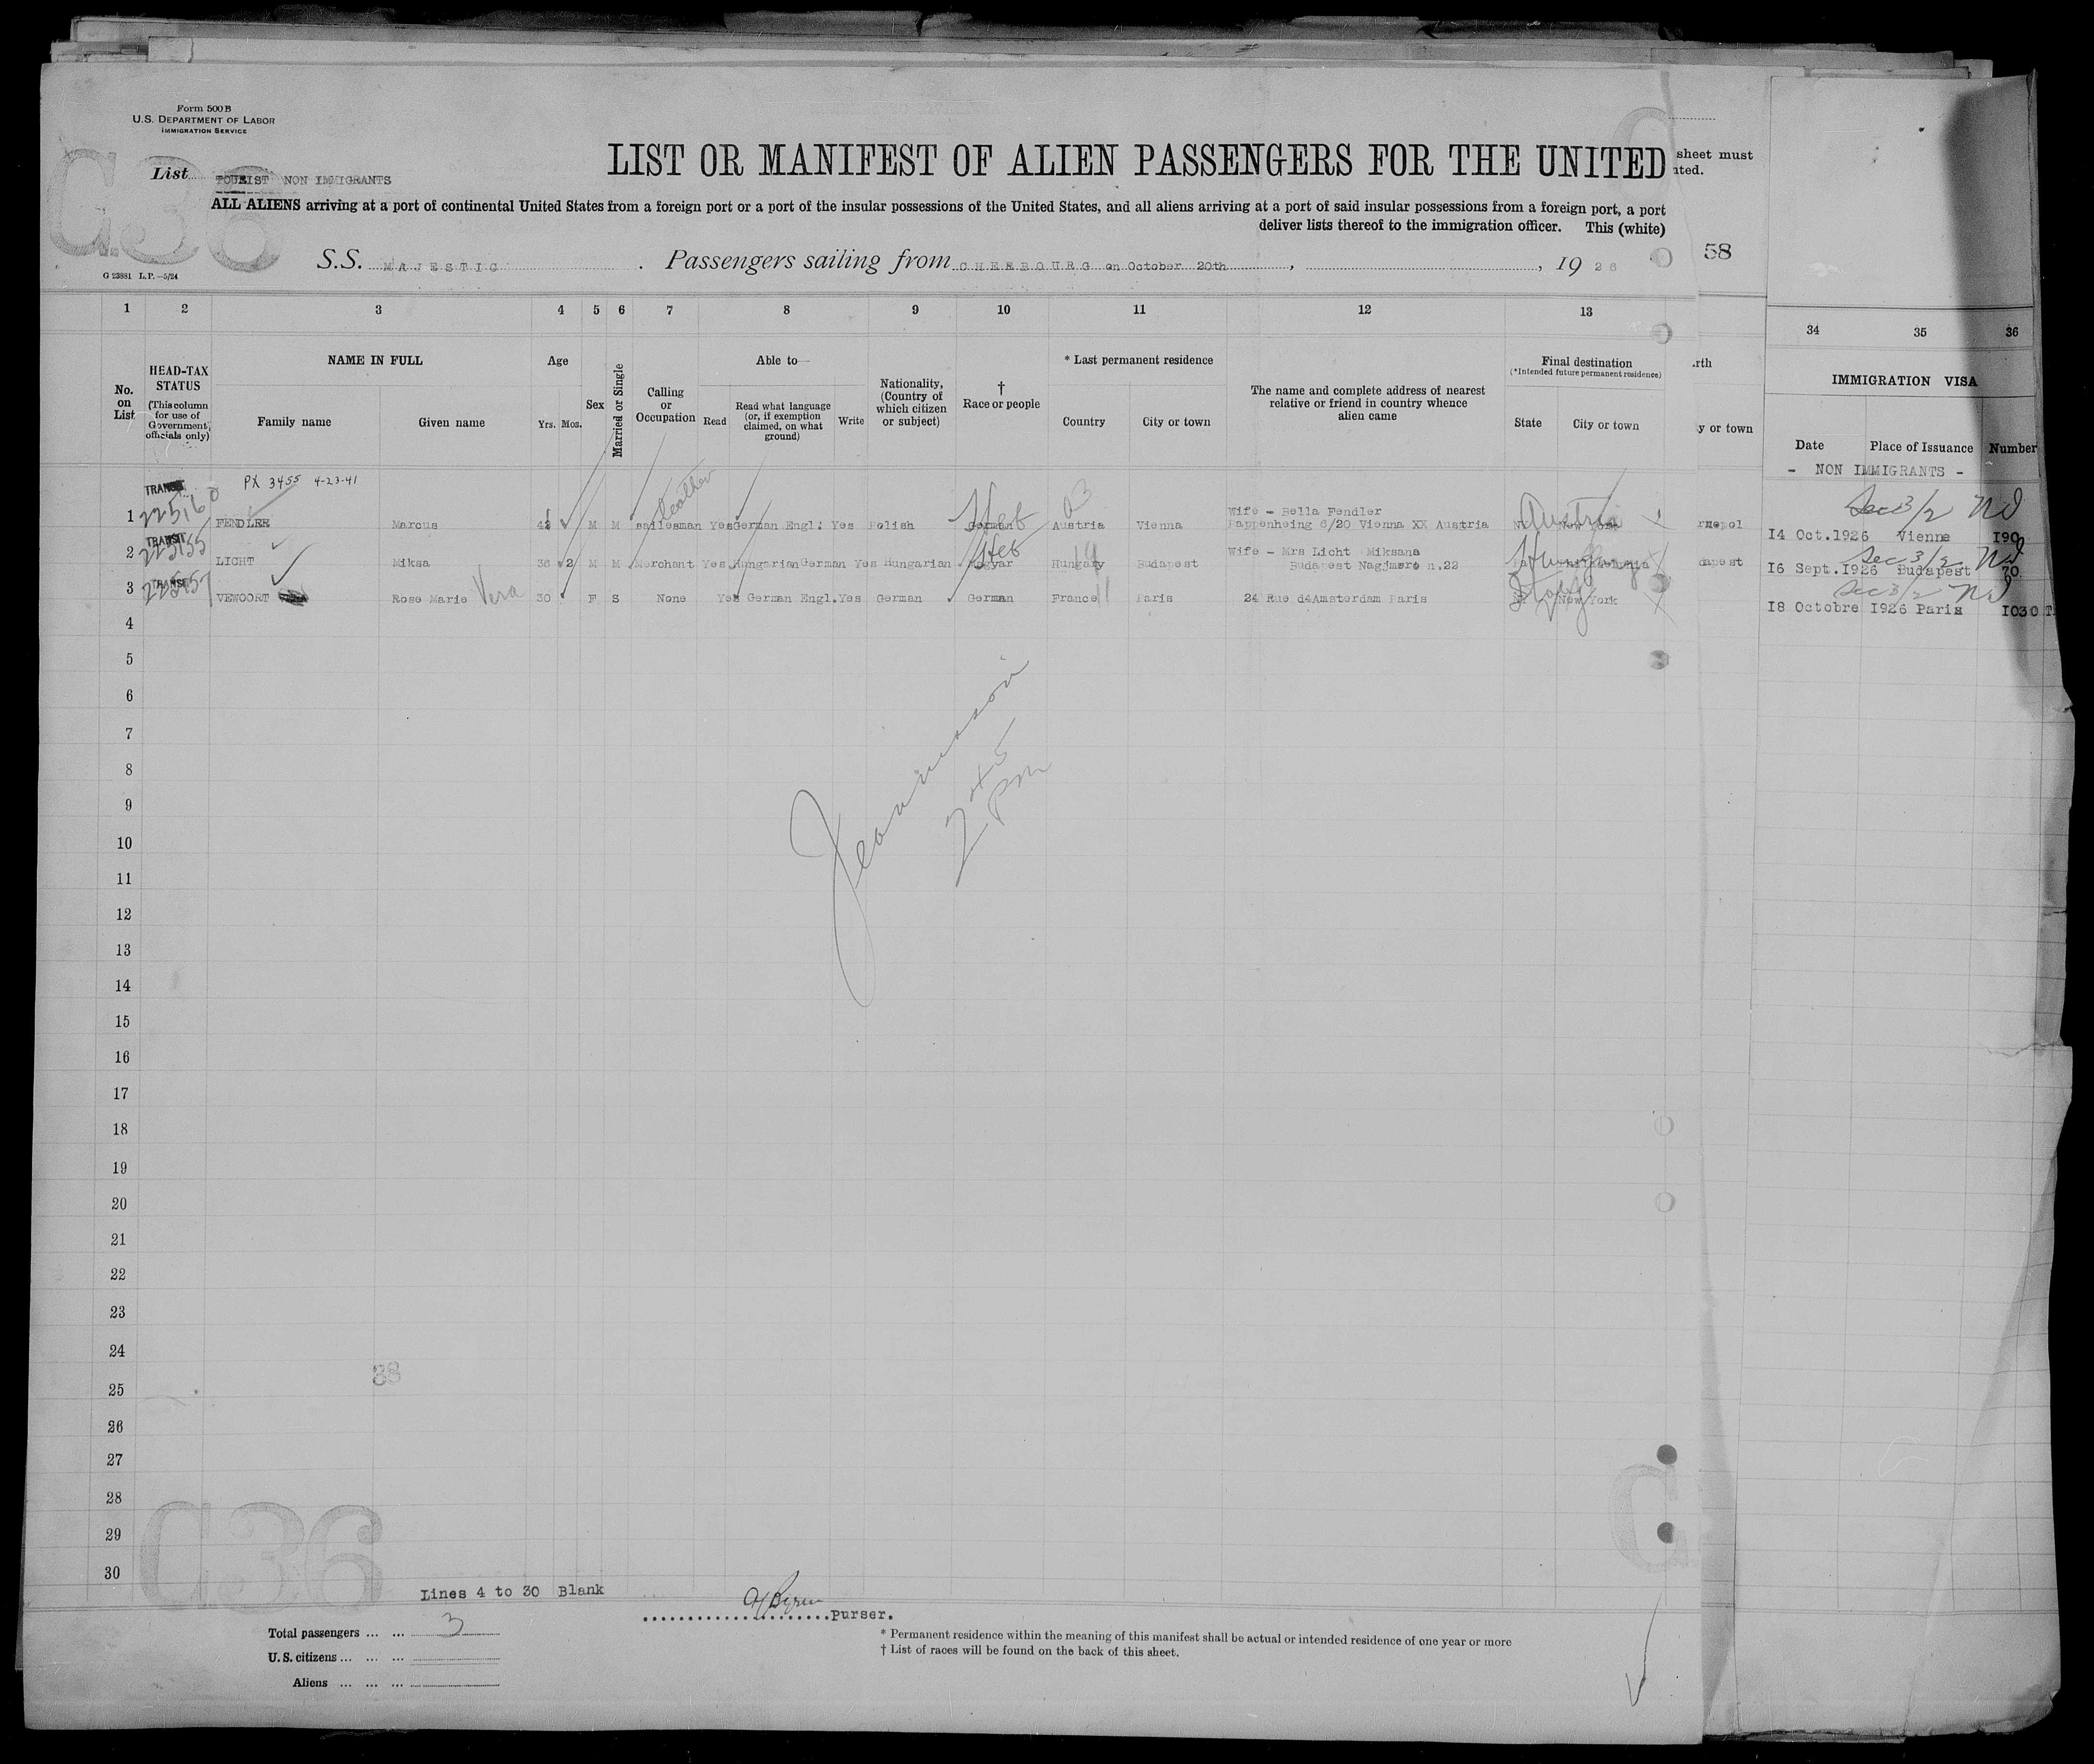 Form 500B
U.S. DEPARTMENT OF LABOR
IMMIGRATION SERVICE
List TOURIST NON IMMIGRANTS
LIST OR MANIFEST OF ALIEN PASSENGERS FOR THE UNITED
sheet must
ALL ALIENS arriving at a port of continental United States from a foreign port or a port of the insular possessions of the United States, and all aliens arriving at a port of said insular possessions from a foreign port, a port
deliver lists thereof to the immigration officer. This (white)
S.S. MAJESTIC. Passengers sailing from CHERBOURG on October 20th, , 1926
58
G 23881 L.P.—5/24
1 2 3 4 5 6 7 8 9 10 11 12 13 34 35 36
No. on List
HEAD-TAX STATUS (This column for use of Government officials only)
NAME IN FULL
Family name Given name
Age
Yrs. Mos.
Sex
Married or Single
Calling or Occupation
Able to—
Read Read what language (or, if exemption claimed, on what ground) Write
Nationality, (Country of which citizen or subject)
† Race or people
* Last permanent residence
Country City or town
The name and complete address of nearest relative or friend in country whence alien came
Final destination
(*Intended future permanent residence)
State City or town
y or town
IMMIGRATION VISA
Date Place of Issuance Number
- NON IMMIGRANTS -
PX 3455 4-23-41
1 TRANSIT FENDLER Marcus M M sailesman leather Yes German Engl. Yes Polish German Heb Austria Vienna
Wife - Bella Fendler
Pappenheing 6/20 Vienna XX Austria
New York Austria
14 Oct.1926 Vienne 190
Sec 3/2
2 TRANSIT LICHT Miksa 36 M M Merchant Yes Hungarian German Yes Hungarian Magyar Heb Hungary Budapest
Wife - Mrs Licht Miksana
Budapest Nagjmero n.22
Hungary
16 Sept.1926 Budapest 70
Sec 3/2
3 TRANSIT VEWOORT Rose Marie Vera 30 F S None Yes German Engl. Yes German German France Paris
24 Rue d4Amsterdam Paris
New York
18 Octobre 1926 Paris 1030 T
Sec 3/2
4
5
6
7
8
9
10
11
12
13
14
15
16
17
18
19
20
21
22
23
24
25
26
27
28
29
30
2 45
PM
38
G36
Lines 4 to 30 Blank
purser.
Total passengers ... ... 3
U.S. citizens ... ... ...
Aliens ... ... ...
* Permanent residence within the meaning of this manifest shall be actual or intended residence of one year or more
† List of races will be found on the back of this sheet.